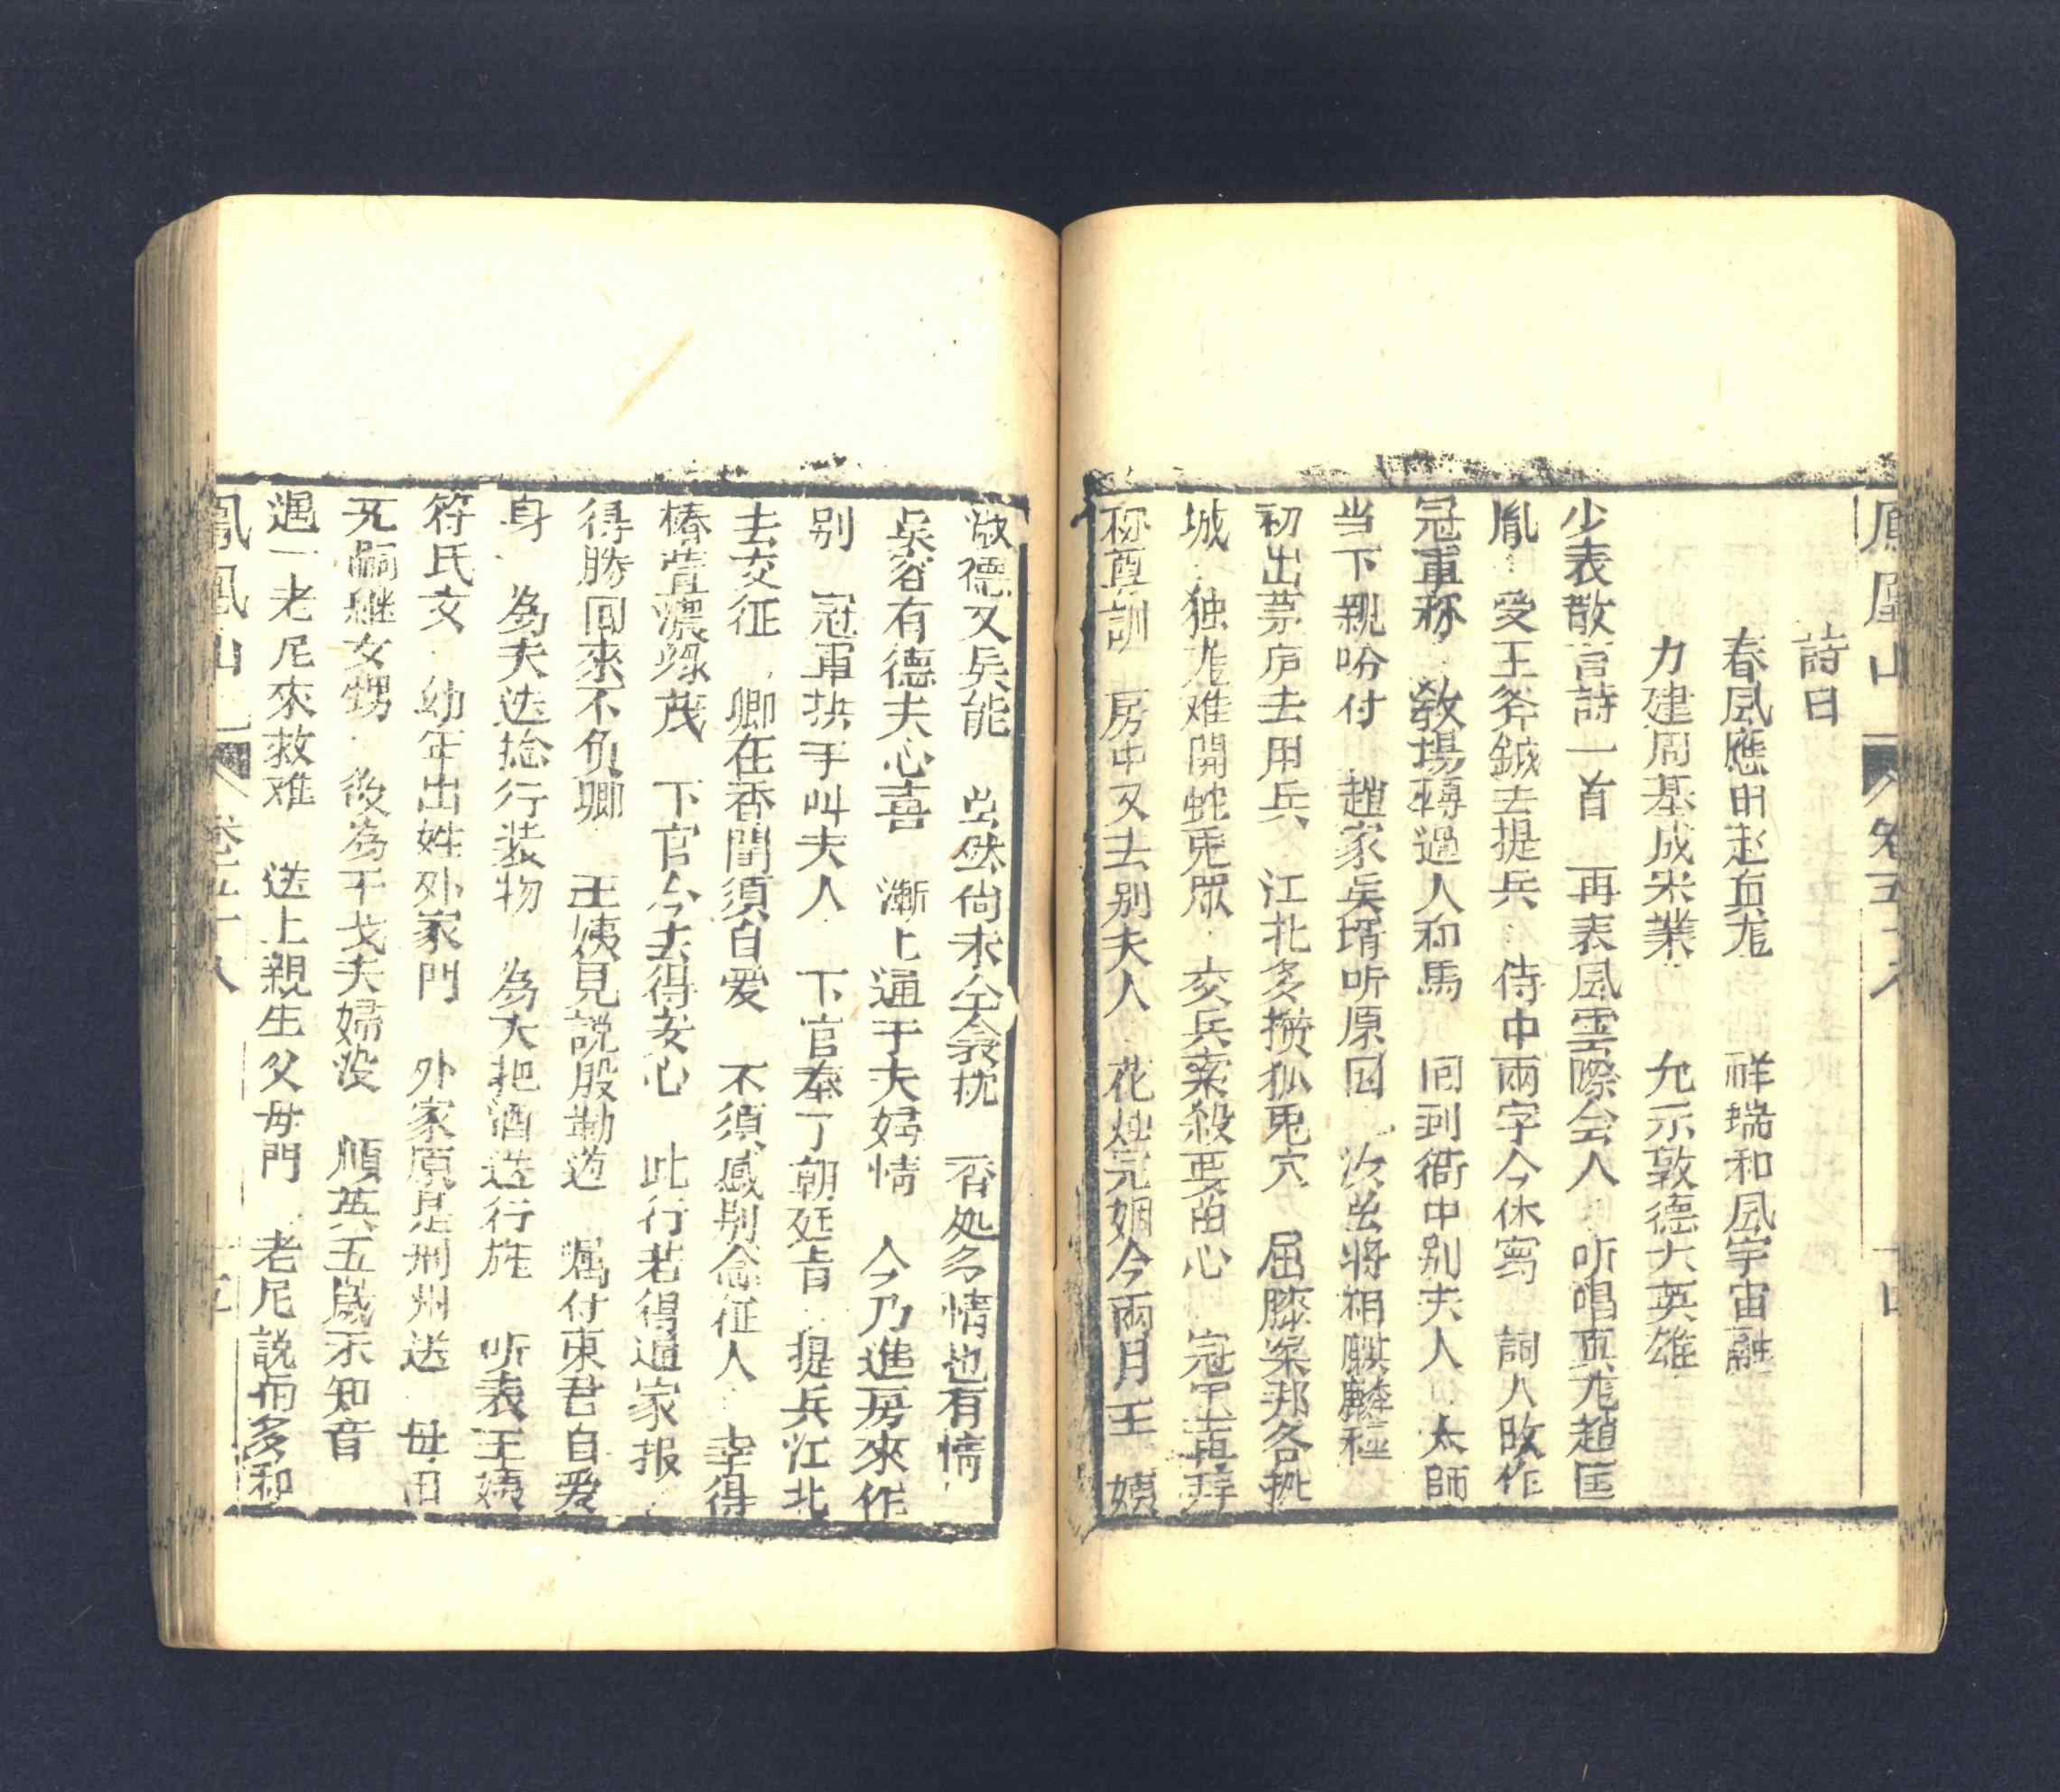 鳳凰山 卷五十八 十四
詩曰
春風應由起真龙 祥瑞和風宇宙融
力建周基成宋業 允示敦德大英雄
少表散言詩一首 再表風雲際会人 听唱真龙趙匡
胤 受王斧鉞去提兵 侍中兩字今休寫 詞人改作
冠軍称 教場轉過人和馬 回到衙中别夫人 太師
当下親吩付 趙家吴壻听原因 次出将相麒麟種
初出茅庐去用兵 江北多攅狐兎穴 屈膝梁邦各挑
城 独龙难開蛇兎眾 交兵索殺要苗心 冠軍拜
称尊訓 房中又去别夫人 花烛完姻今兩月 王姨
淑德又吳能 出然尚未仝衾枕 各处多情也有情
吳爷有德夫心喜 漸上通于夫婦情 今乃進房來作
别 冠軍拱手叫夫人 下官奉了朝廷旨 提兵江北
去交征 卿在香閨須自爱 不須感别念征人 幸得
椿萱濃綠茂 下官今去得安心 此行若得過家报
得勝回來不负卿 王姨見説殷勤道 嘱付東君自爱
身 為夫迭捡行装物 為夫把酒送行旌 听表王姨
符氏女 幼年出姓外家門 外家原是荆州送 毋舅
无嗣継女甥 後為干戈夫婦没 順英五歲不知音
遇一老尼來救难 送上親生父毋門 老尼説而多和
鳳凰山 卷五十八 十五